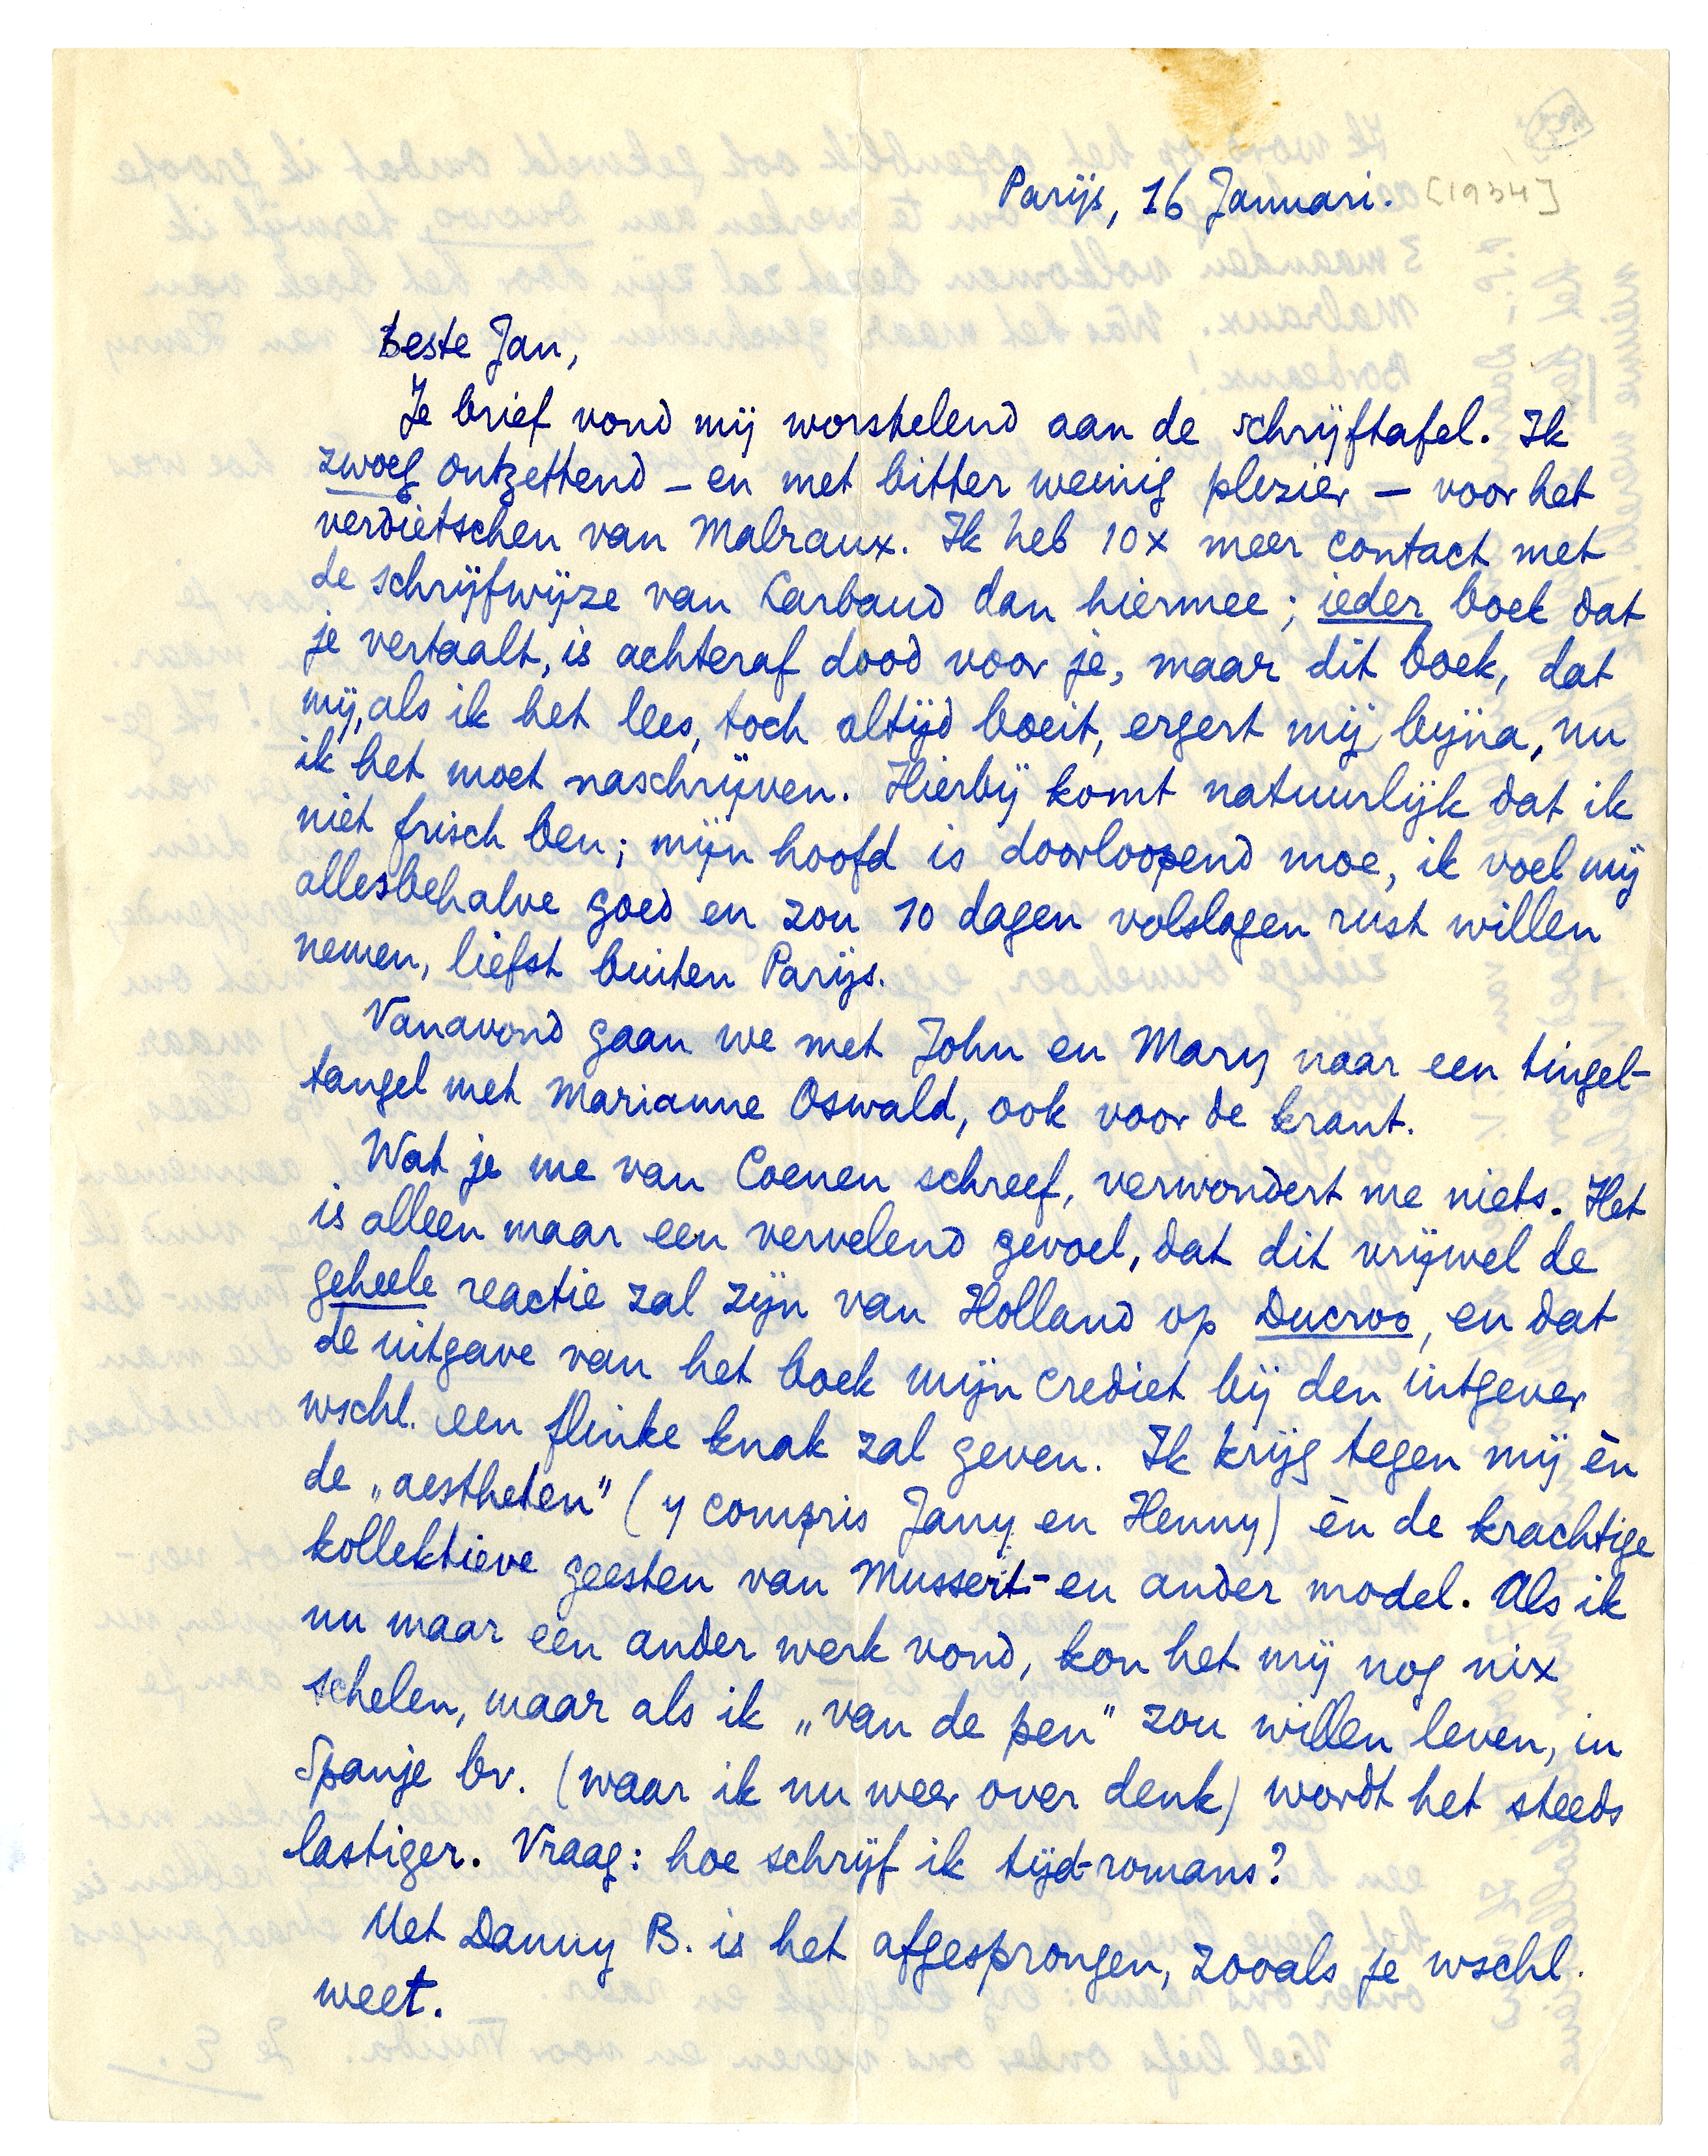 Parijs, 16 Januari. [1934]
Beste Jan,
Je brief vond mij worstelend aan de schrijftafel. Ik
zwoeg ontzettend – en met bitter weinig plezier – voor het
verdietschen van Malraux. Ik heb 10x meer contact met
de schrijfwijze van Larbaud dan hiermee; ieder boek dat
je vertaalt, is achteraf dood voor je, maar dit boek, dat
mij, als ik het lees, toch altijd boeit, ergert mij bijna, nu
ik het moet naschrijven. Hierbij komt natuurlijk dat ik
niet frisch ben; mijn hoofd is doorloopend moe, ik voel mij
allesbehalve goed en zou 10 dagen volslagen rust willen
nemen, liefst buiten Parijs.
Vanavond gaan we met John en Mary naar een tingel-
tangel met Marianne Oswald, ook voor de krant.
Wat je me van Coenen schreef, verwondert me niets. Het
is alleen maar een vervelend gevoel, dat dit vrijwel de
geheele reactie zal zijn van Holland op Ducroo, en dat
de uitgave van het boek mijn crediet bij den uitgever
wschl. een flinke knak zal geven. Ik krijg tegen mij èn
de „aestheten" (y compris Jany en Henny) èn de krachtige
kollektieve geesten van Mussert- en ander model. Als ik
nu maar een ander werk vond, kon het mij nog nix
schelen, maar als ik „van de pen" zou willen leven, in
Spanje bv. (waar ik nu weer over denk) wordt het steeds
lastiger. Vraag: hoe schrijf ik tijd-romans?
Met Danny B. is het afgesprongen, zooals je wschl.
weet.